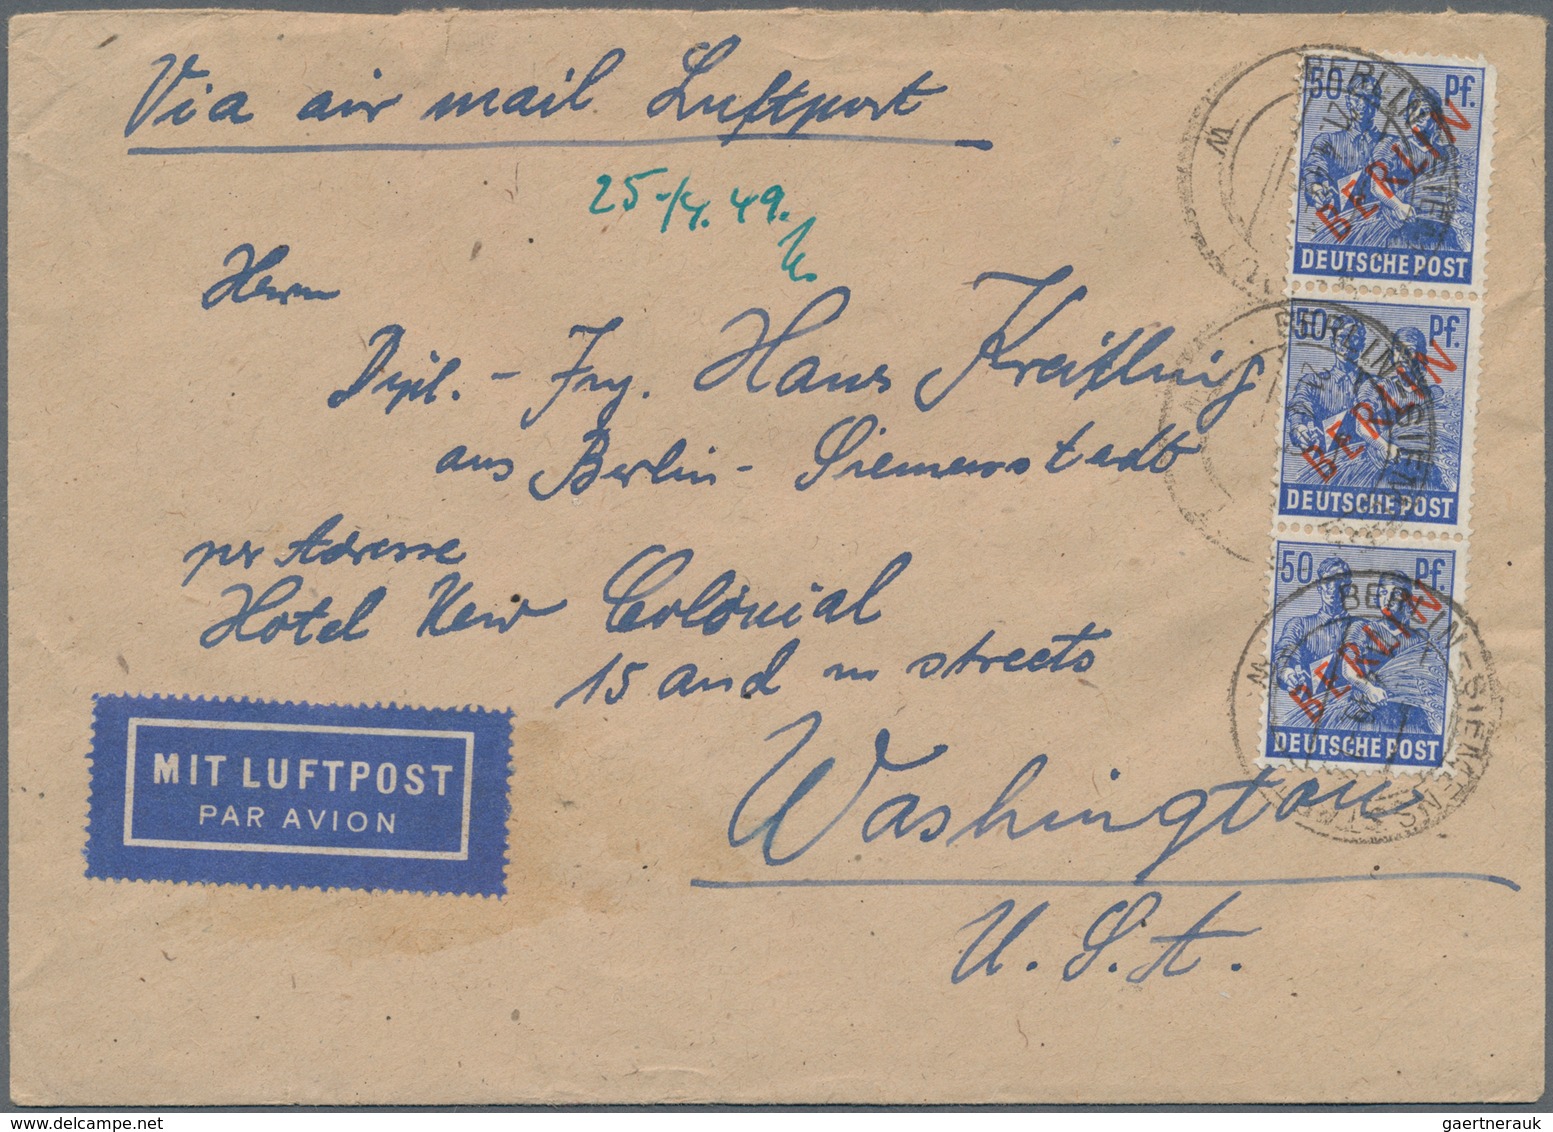 Via air mail Luftpost
25./4. 49.
Herrn
Dipl. - Ing. Hans Kreitling
aus Berlin - Siemensstadt
per Adresse
Hotel New Colonial
15 and m streets
Washington
U. S. A.
MIT LUFTPOST
PAR AVION
50 Pf.
BERLIN
DEUTSCHE POST
50 Pf.
BERLIN
DEUTSCHE POST
50 Pf.
BERLIN
DEUTSCHE POST
gaertnerauk @ delcampe.net